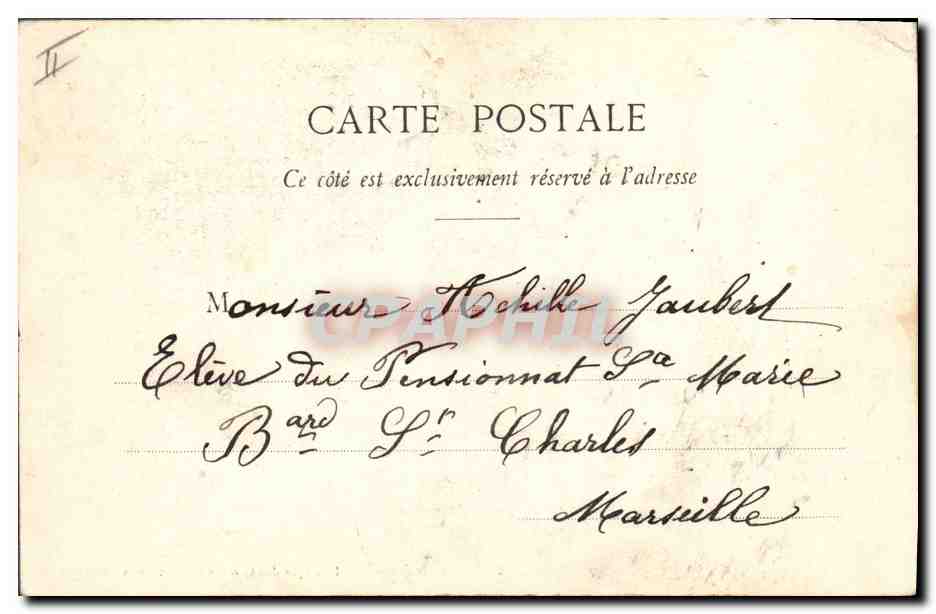 II
CARTE POSTALE
Ce côté est exclusivement réservé à l'adresse
Monsieur Achille Jaubert
Elève du Pensionnat Sa Marie
Bard St Charles
Marseille
CPAPHIL